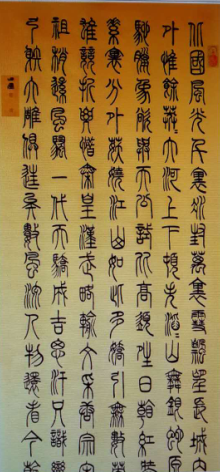 北國風光千里冰封萬里雪飄望長城內
外惟餘莽〻大河上下頓失滔〻山舞銀蛇原
馳蠟象欲與天公試比高須晴日看紅裝
素裹分外妖嬈江山如此多嬌引無數英
雄競折腰惜秦皇漢武略輸文采唐宗宋
祖稍遜風騷一代天驕成吉思汗只識彎
弓射大雕俱往矣數風流人物還看今朝